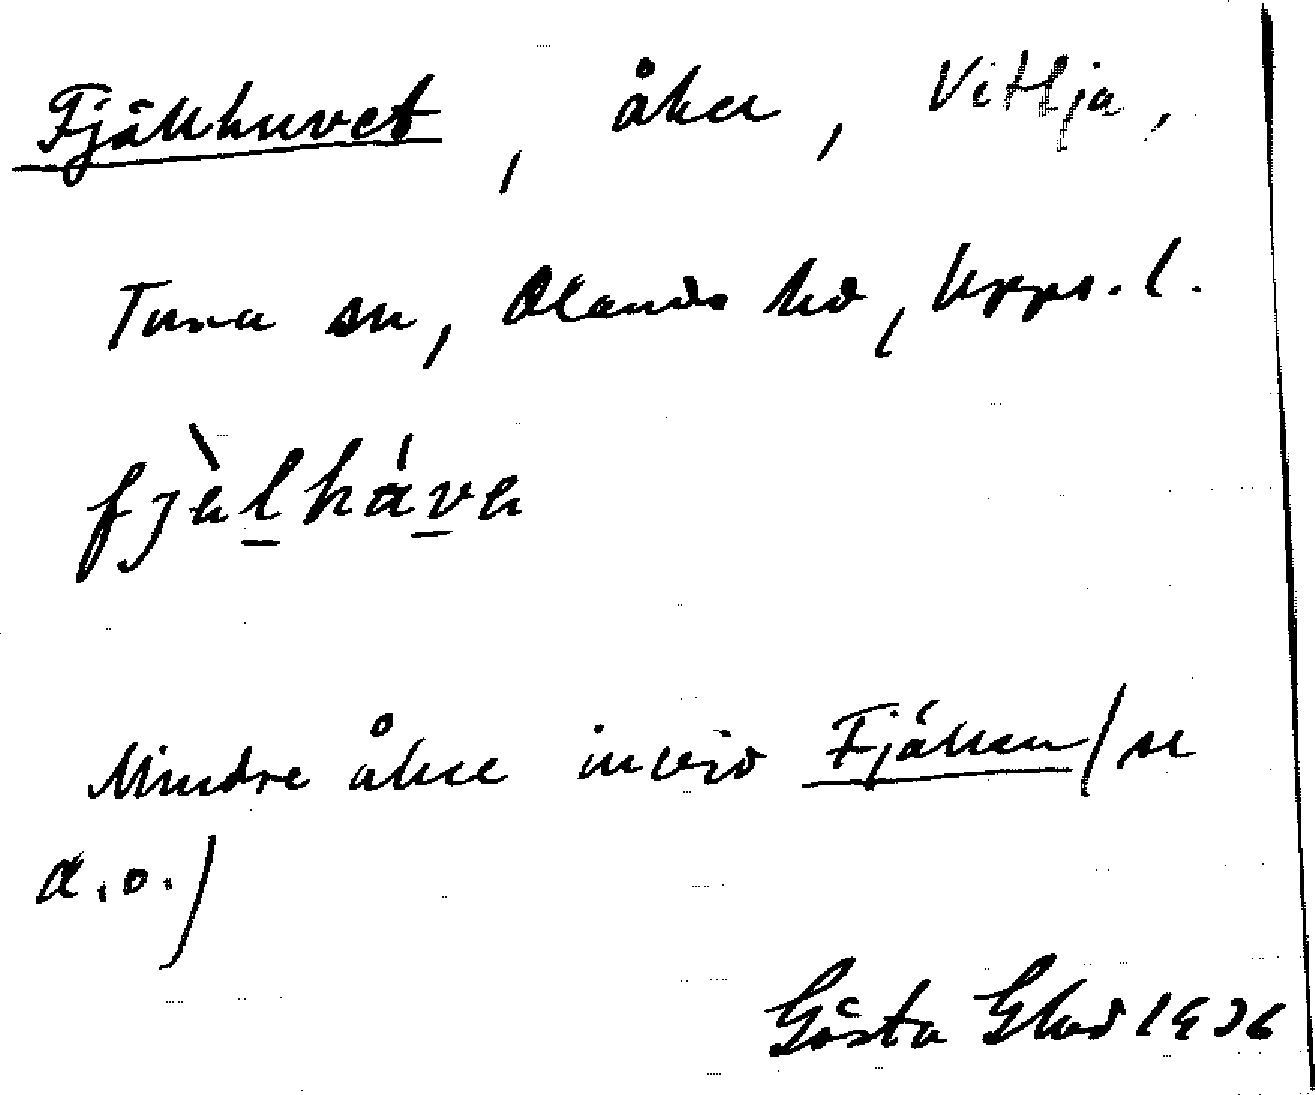 Fjällhuvet, åker, Vitlja,
Tuna sn, Olands hd, Upps. l.
fjàlháva
Mindre åker invid Fjällen (se
d.o.)
Gösta Glad 1936